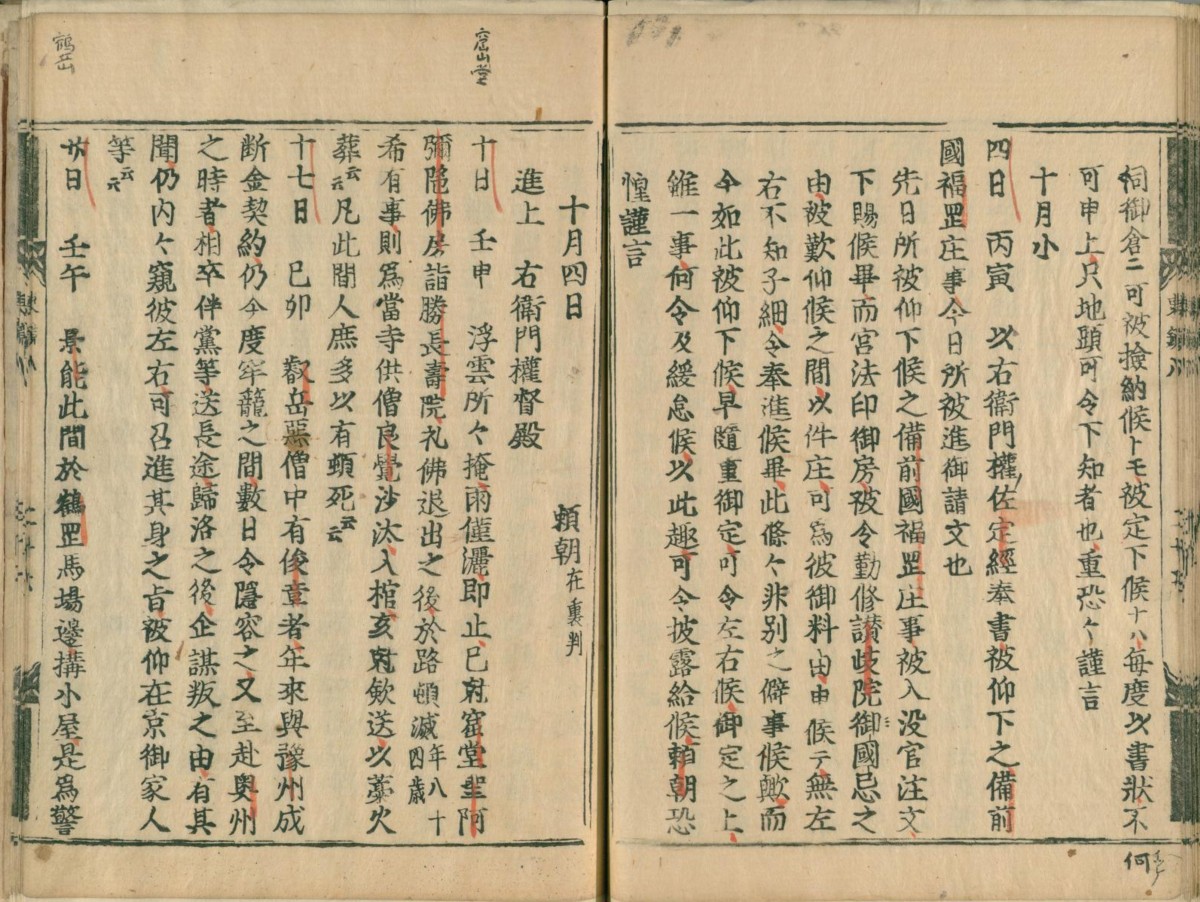 伺御倉ニ可被撿納候トモ被定下候十八每度以書狀不
可申上只地頭可令下知者也重恐々謹言
十月小
四日 丙寅 以右衛門權佐定經奉書被仰下之備前
國福罡庄事今日所被進御請文也
先日所被仰下候之備前國福罡庄事被入没官注文
下賜候畢而宮法印御房被令勤修讃岐院御國忌之
由被歎仰候之間以件庄可爲彼御料由申候テ無左
右不知子細令奉進候畢此條々非別之僻事候歟而
今如此被仰下候早隨重御定可令左右候御定之上
雖一事何令及緩怠候以此趣可令披露給候賴朝恐
惶謹言
何
十月四日 賴朝在裏判
進上 右衛門權督殿
窟堂
十日 壬申 浮雲所々掩雨僅灑即止巳尅窟堂聖阿
彌陁佛房詣勝長壽院礼佛退出之後於路頓滅年八十四歳
希有事則爲當寺供僧良覺沙汰入棺亥尅欸送以藁火
葬云云凡此間人庶多以有頓死云云
十七日 己卯 叡岳悪僧中有俊章者年來與豫州成
断金契約仍今度牢籠之間數日令隱容之又至赴奥州
之時者相卒伴黨等送長途歸洛之後企謀叛之由有其
聞仍内々窺彼左右可召進其身之旨被仰在京御家人
等云云
鶴岳
廿日 壬午 景能此間於鶴罡馬場邊搆小屋是爲警